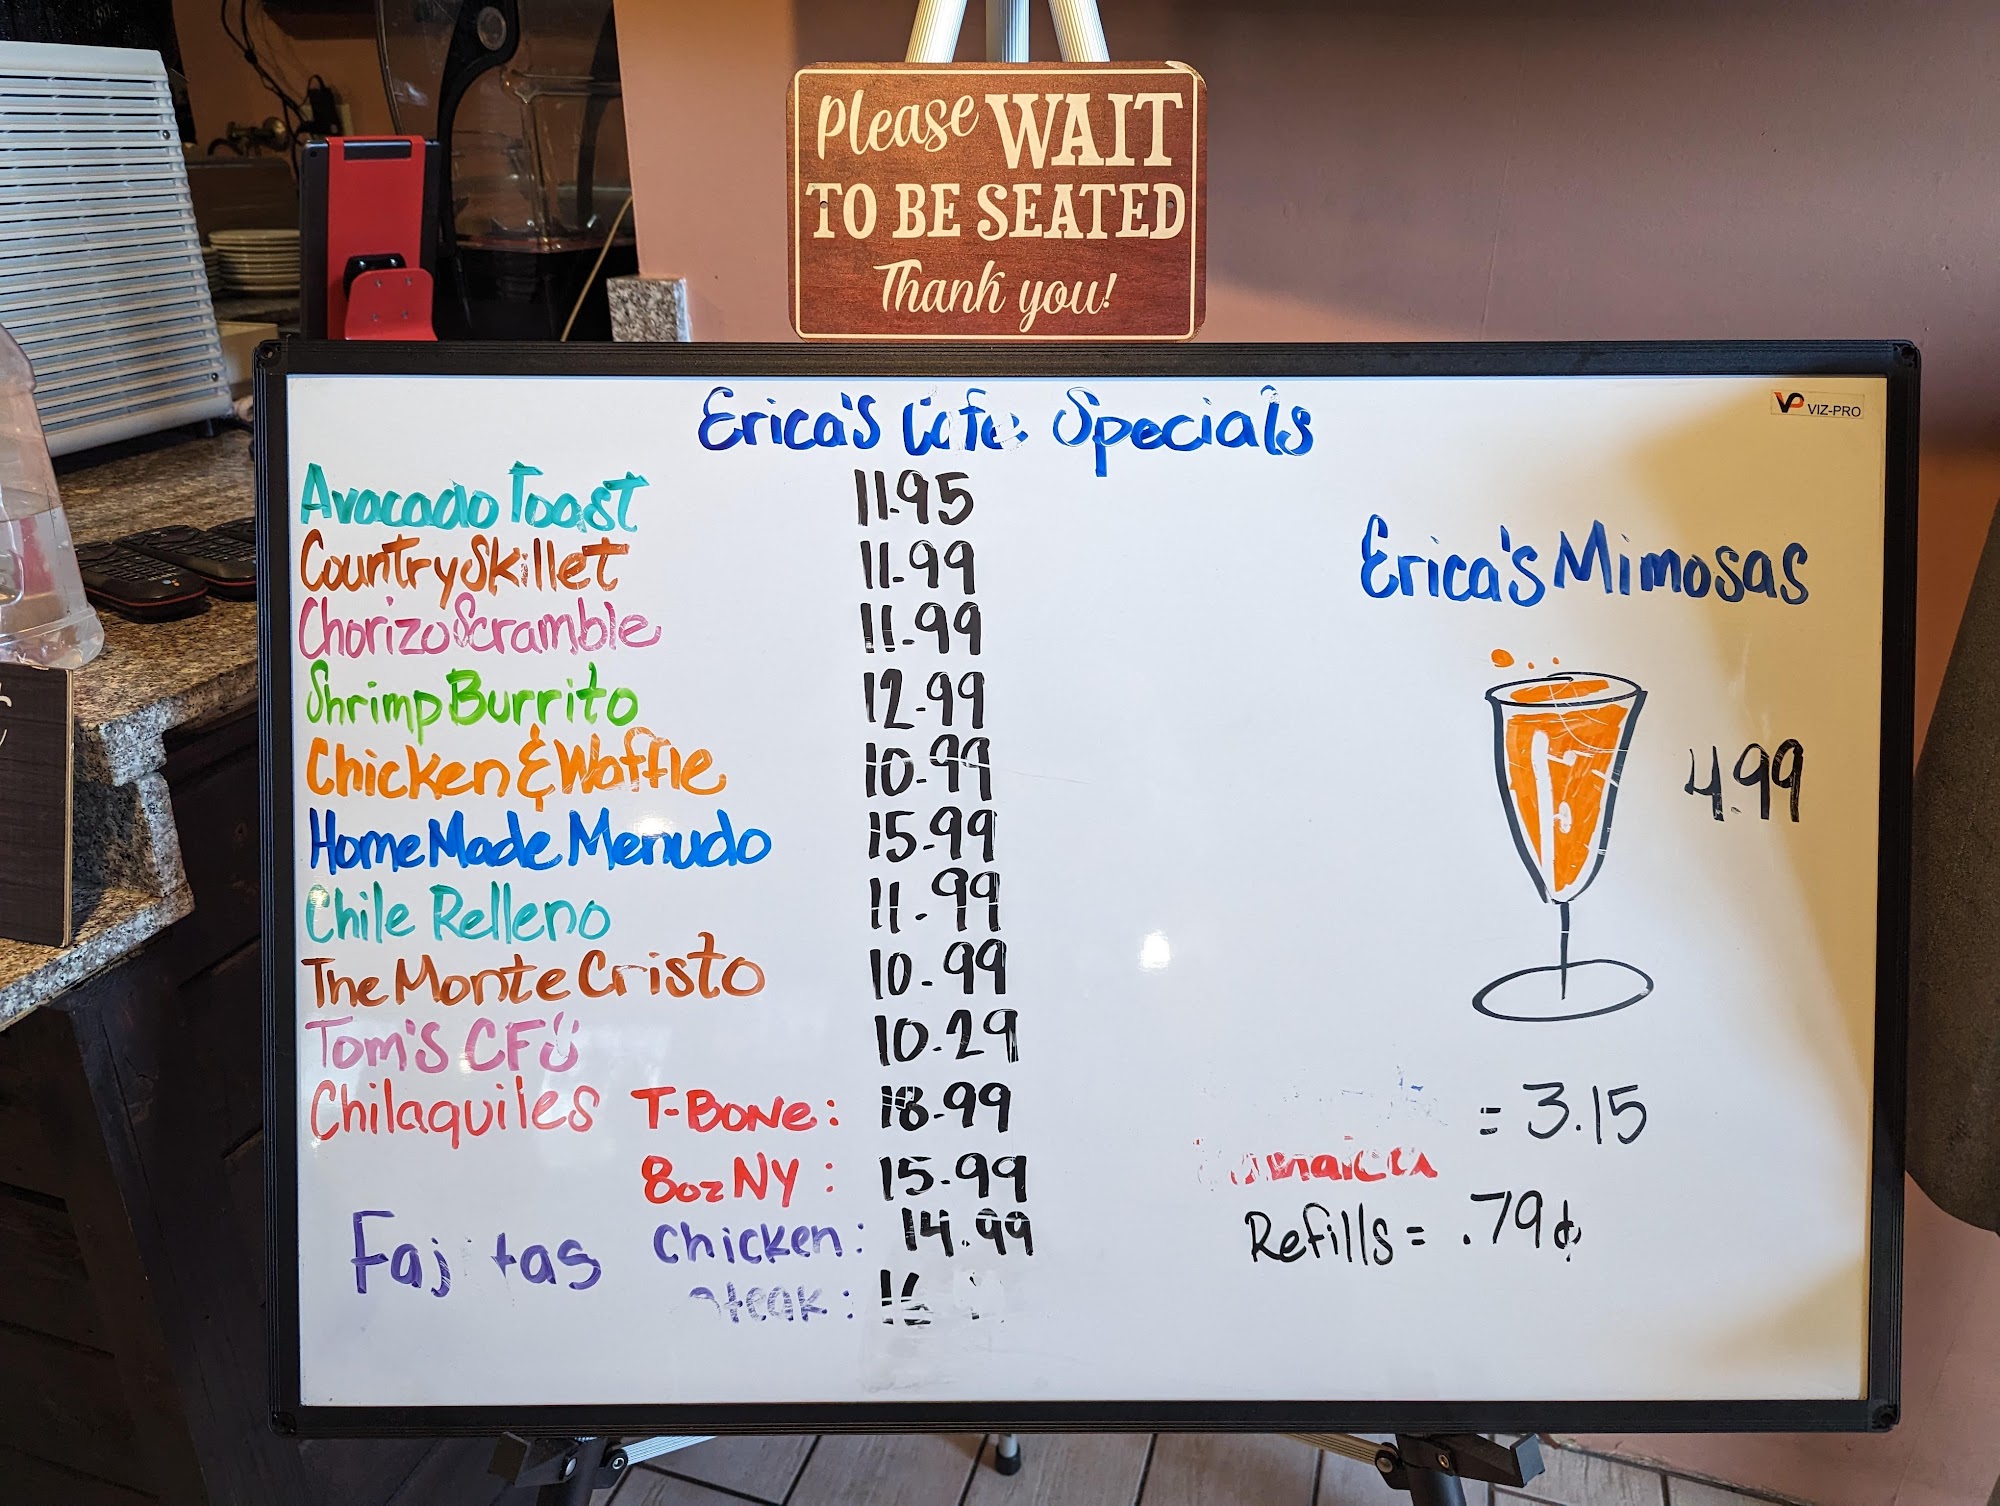 Please WAIT
TO BE SEATED
Thank you!
VIZ-PRO
Erica's Cafe Specials
Avocado Toast 11.95
Country Skillet 11.99
Chorizo Scramble 11.99
Shrimp Burrito 12.99
Chicken & Waffle 10.99
HomeMade Menudo 15.99
Chile Relleno 11.99
The Monte Cristo 10.99
Tom's CFS 10.29
Chilaquiles T-BONe: 18.99
8oz NY: 15.99
Fajitas Chicken: 14.99
steak: 16
Erica's Mimosas
4.99
= 3.15
Jamaica
Refills = .79¢